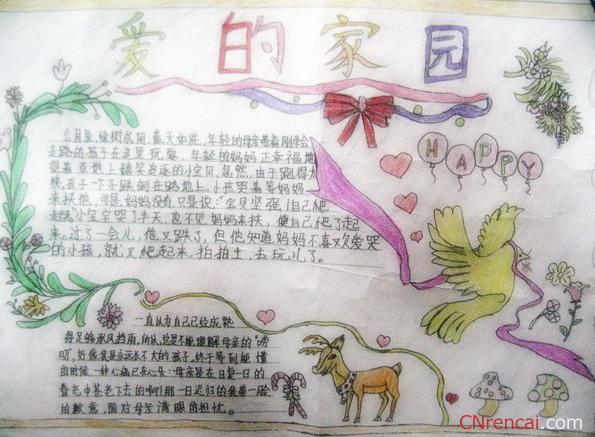 爱的家园
HAPPY
公园里，绿树成阴，蓝天如洗，年轻的母亲带着刚学会
走路的孩子在这里玩耍，年轻的妈妈正幸福地
望着草地上嬉笑追逐的小宝贝，忽然，由于跑得太
快，孩子一下子跌倒在路地上，小孩哭着等妈妈
来扶他，可是妈妈没有，只是说："宝贝坚强！自己爬
起来"小宝宝哭了半天，也不见妈妈来扶，便自己爬了起
来。过了一会儿，他又跌了，但他知道妈妈不喜欢爱哭
的小孩，就又爬起来，拍拍土，去玩儿了。
一直认为自己已经成熟
得足够承风挡雨，所以，总是不能理解母亲的"唠
叨"，好像我是永远长不大的孩子。终于等到能懂
的时候，一种心痛已在心头：母亲是在日复一日的
着老去的啊！那一日迟归的我带一脸
的歉意，面对母亲满眼的担忧。
CNrencai.com